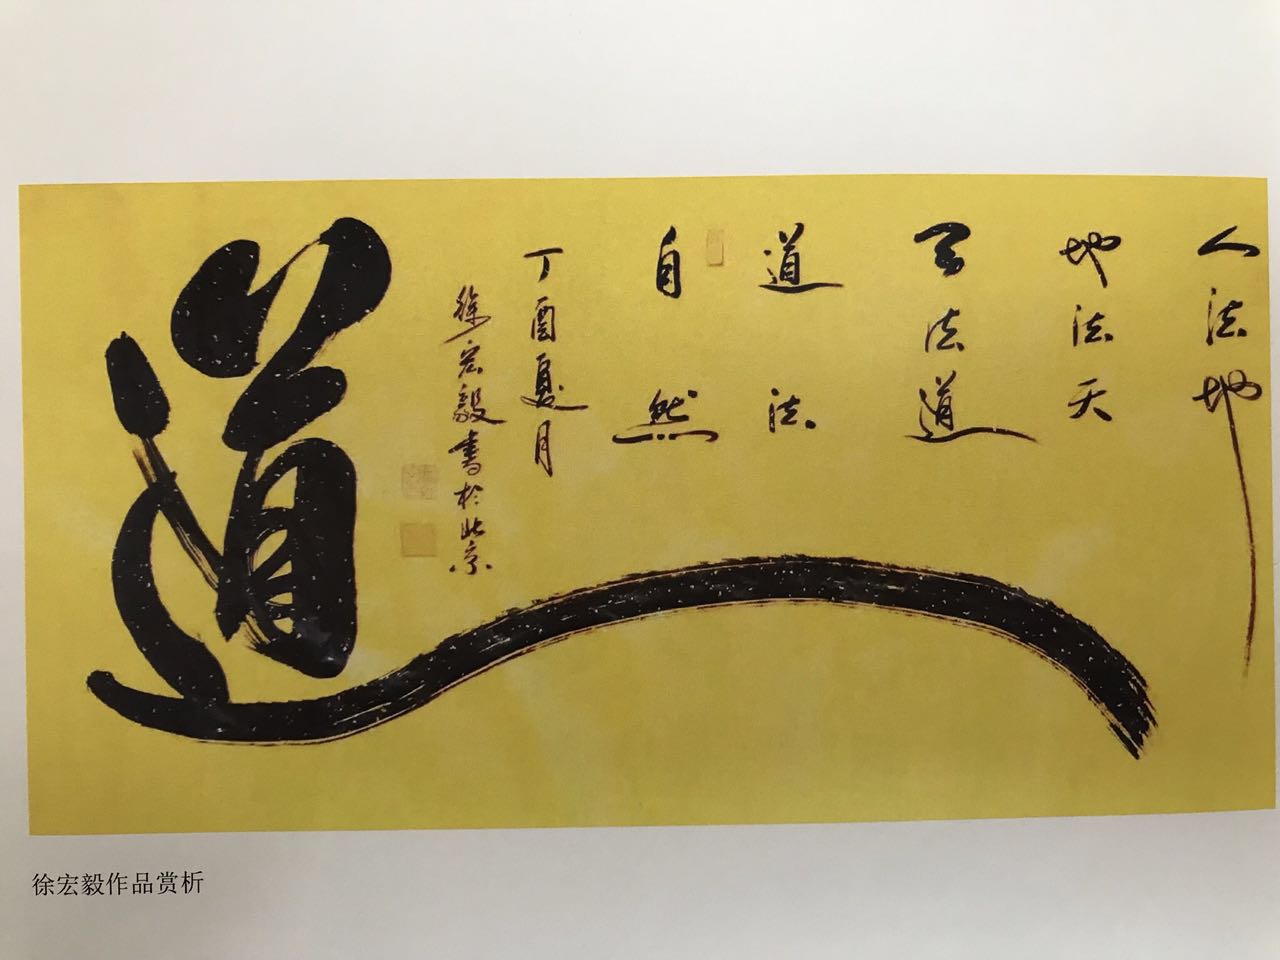 人法地
地法天
天法道
道法
自然
丁酉夏月
徐宏毅書於北京
道
徐宏毅作品赏析